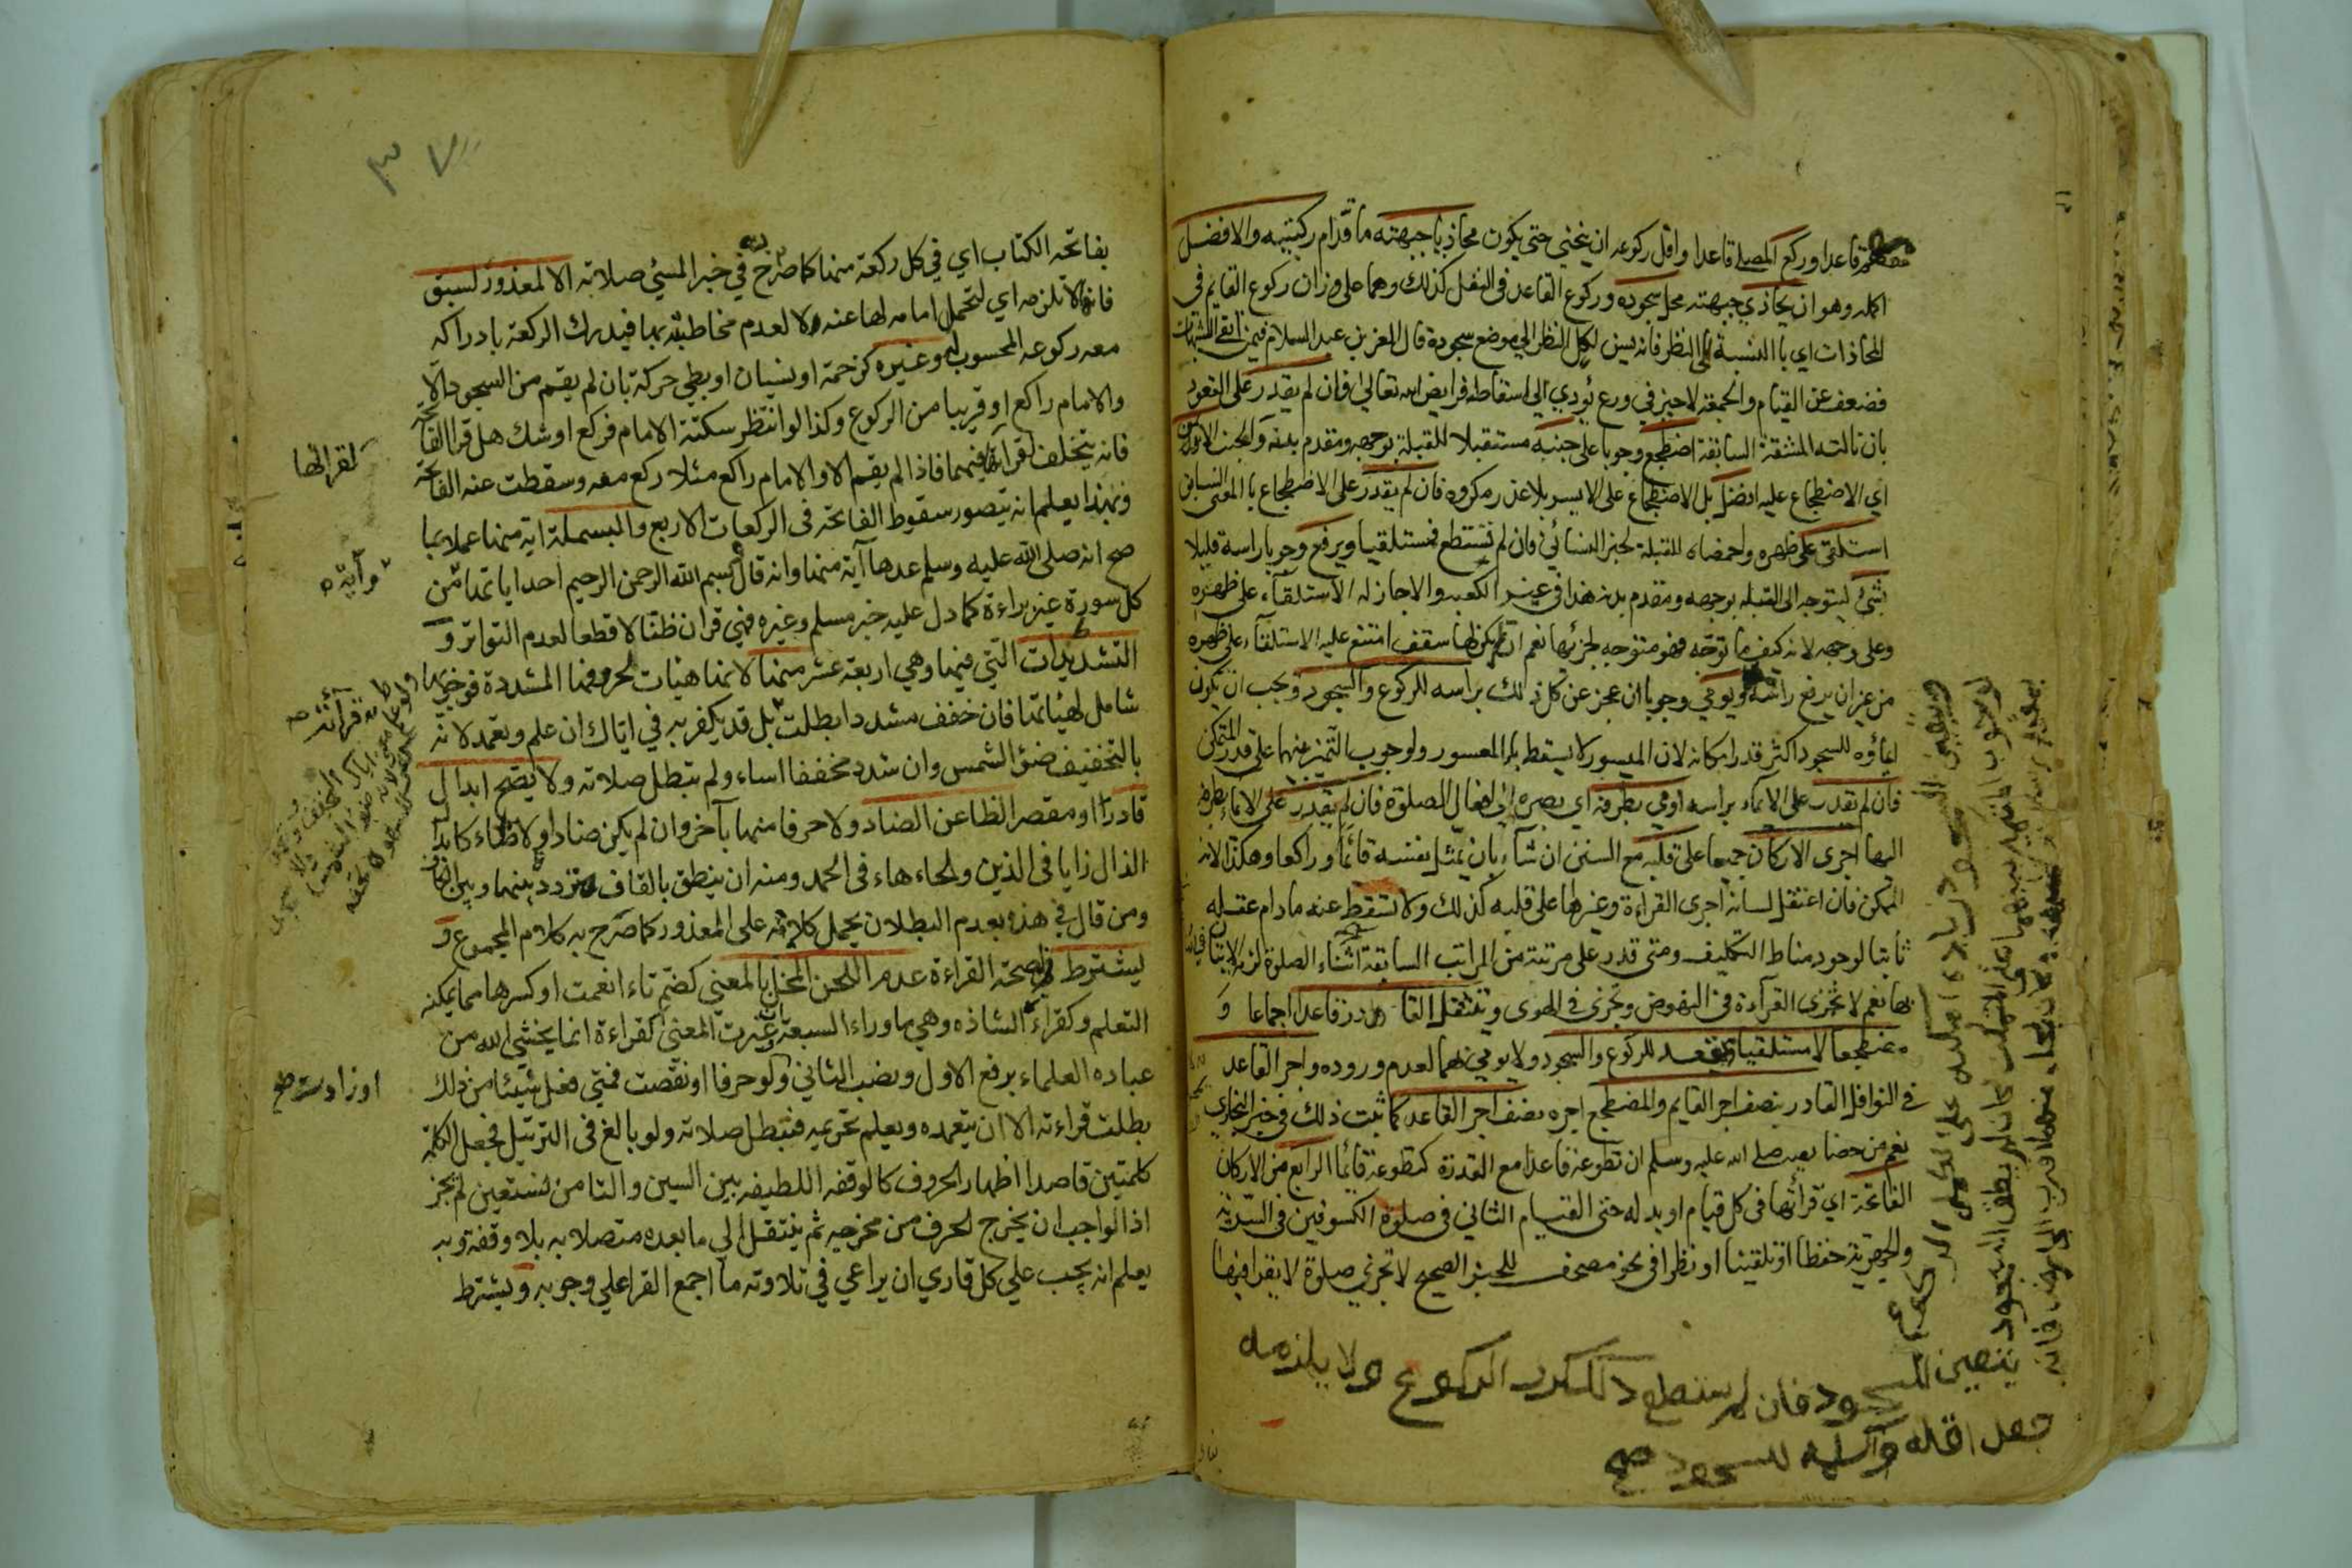 قاعدا وركع المصلي قاعدا واقل ركوعه ان ينحني حتى يكون محاذيا جبهته ما قدام ركبتيه والافضل
اكمله وهو ان يحاذي جبهته محل سجوده وركوع القاعد في النفل كذلك وهما على وزان ركوع القايم في
المحاذات اي با النسبة الى النظر فانه يسن لكل النظر الى موضع سجوده قال العز بن عبد السلام فيمن اتقى الشبهات
فضعف عن القيام والجمعة لا خير في ورع يؤدي الى اسقاط فرايض الله تعالى فان لم يقدر على القعود
بان نالته المشقة السابقة اضطجع وجوبا على جنبه مستقبلا للقبلة بوجهه ومقدم بدنه والجنب الايمن
اي الاضطجاع عليه افضل بل الاضطجاع على الايسر بلا عذر مكروه فان لم يقدر على الاضطجاع با المعنى السابق
استلقى على ظهره واخمصاه للقبلة لخبر النسائي فان لم تستطع فمستلقيا ويرفع وجوبا راسه قليلا
بشيء ليتوجه الى القبلة بوجهه ومقدم بدنه هذا في غير الكعبة والا جاز له الاستلقاء على ظهره
وعلى وجهه لانه كيف ما توجه فهو متوجه لجزئها نعم ان لم يكن لها سقف امتنع عليه الاستلقاء على ظهره
من غير ان يرفع راسه ويومي وجوبا ان عجز عن كل ذلك براسه للركوع والسجود ويجب ان يكون
ايماؤه للسجود اكثر قدر امكانه لان الميسور لا يسقط با المعسور ولوجوب التميز بينهما على قدر المتمكن
فان لم يقدر على الايماء براسه اومى بطرفه اي بصره الى افعال الصلوة فان لم يقدر على الايماء بطرفه
اليها اجرى الاركان جميعا على قلبه مع السنن ان شاء بان يمثل نفسه قائما وراكعا وهكذا لانه
الممكن فان اعتقل لسانه اجرى القراءة وغيرها على قلبه كذلك ولا تسقط عنه ما دام عقله
ثابتا لوجود مناط التكليف ومتى قدر على مرتبة من المراتب السابقة اثناء الصلوة لزمه الاتيان
بها نعم لا تجزى القرآءة في النهوض وتجزى في الهوى ويتنفل القادر قاعدا اجماعا و
مضطجعا لا مستلقيا ويقعد للركوع والسجود ولا يومي بهما لعدم وروده واجر القاعد
في النوافل القادر نصف اجر القايم والمضطجع اجره نصف اجر القاعد كما ثبت ذلك في خبر البخاري
نعم من خصايصه صلى الله عليه وسلم ان تطوعه قاعدا مع القدرة كتطوعه قائما الرابع من الاركان
الفاتحة اي قرأتها في كل قيام او بدله حتى القيام الثاني في صلوة الكسوفين في السرية
والجهرية حفظا او تلقينا او نظرا في نحو مصحف للخبر الصحيح لا تجزي صلوة لا يقرا فيها
يتعين للسجود فان لم يستطع ذلك الركوع ولا يلزمه
جعل اقله واكمله للسجود صح
٣٧
بفاتحة الكتاب اي في كل ركعة منها كما صرح به في خبر المسيئ صلاته الا لمعذور لسبق
فانها لا تلزمه اي لتحمل امامه لها عنه ولا لعدم مخاطبته بها فيدرك الركعة بادراكه
معه ركوعه المحسوب له وغيره كزحمة او نسيان او بطي حركة بان لم يقم من السجود الا
والامام راكع او قريبا من الركوع وكذا لو انتظر سكتة الامام فركع او شك هل قرا الفاتحة
فانه يتخلف لقرأتها فيهما فاذا لم يقم الا والامام راكع مثلا ركع معه وسقطت عنه الفاتحة
وبهذا يعلم انه يتصور سقوط الفاتحة في الركعات الاربع والبسملة اية منها عملا بما
صح انه صلى الله عليه وسلم عدها آية منها وانه قال بسم الله الرحمن الرحيم احد اياتها من
كل سورة غير براءة كما دل عليه خبر مسلم وغيره فهي قران ظنا لا قطعا لعدم التواتر و
التشديدات التي فيها وهي اربعة عشر منها لانها هيات لحروفها المشددة فوجوبها
شامل لهيئاتها فان خفف مشددا بطلت بل قد يكفر به في اياك ان علم وتعمد لانه
بالتخفيف ضوء الشمس وان شدد مخففا اساء ولم تبطل صلاته ولا يصح ابدال
قادر او مقصر الظا عن الضاد ولا حرفا منها بآخر وان لم يكن ضادا ولا ظاء كابدال
الذال زايا في الذين والحاء هاء في الحمد ومنه ان ينطق بالقاف مترددة بينهما وبين الكاف
ومن قال في هذه بعدم البطلان يحمل كلامه على المعذور كما صرح به كلام المجموع و
يشترط في صحة القراءة عدم اللحن المخل بالمعنى كضم تاء انعمت او كسرها ممن يمكنه
التعلم وكقراءة الشاذه وهي ما وراء السبعة غيرت المعنى كقراءة انما يخشى الله من
عباده العلماء برفع الاول ونصب الثاني ولو حرفا او نقصت فمتى فعل شيئا من ذلك
بطلت قراءته الا ان يتعمده ويعلم تحريمه فتبطل صلاته ولو بالغ في الترتيل فجعل الكلمة
كلمتين قاصدا اظهار الحروف كالوقفه اللطيفه بين السين والتا من نستعين لم يجز
اذ الواجب ان يخرج الحرف من مخرجه ثم ينتقل الى ما بعده متصلا به بلا وقفة وبه
يعلم انه يجب على كل قاري ان يراعي في تلاوته ما اجمع القرا على وجوبه ويشترط
لقرائتها
وآية
او زادت صح